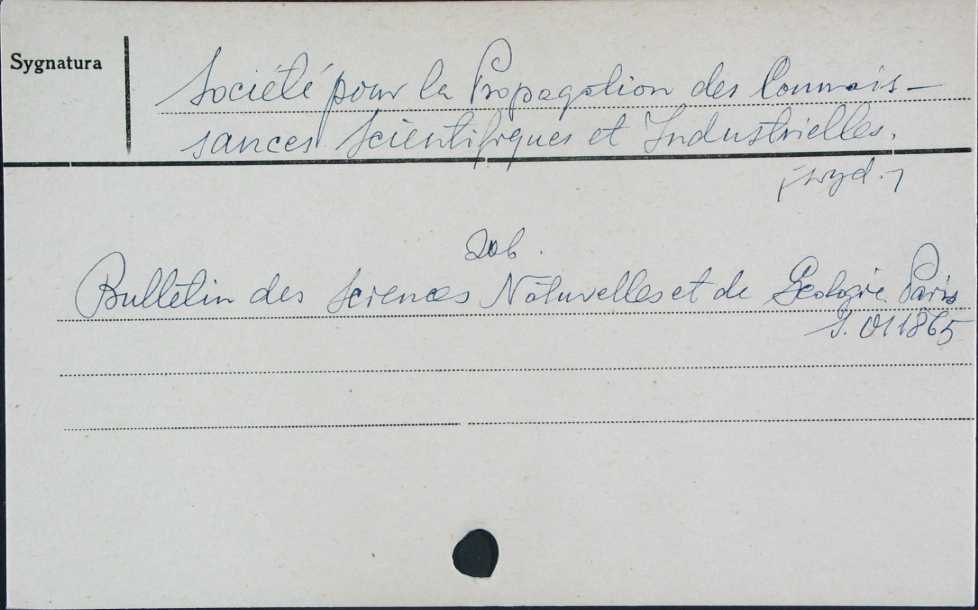 Sygnatura
Société pour la Propagation des Connais-
sances Scientifiques et Industrielles.
[wyd.]
Zob.
Bulletin des Sciences Naturelles et de Geologie. Paris
S. 011865